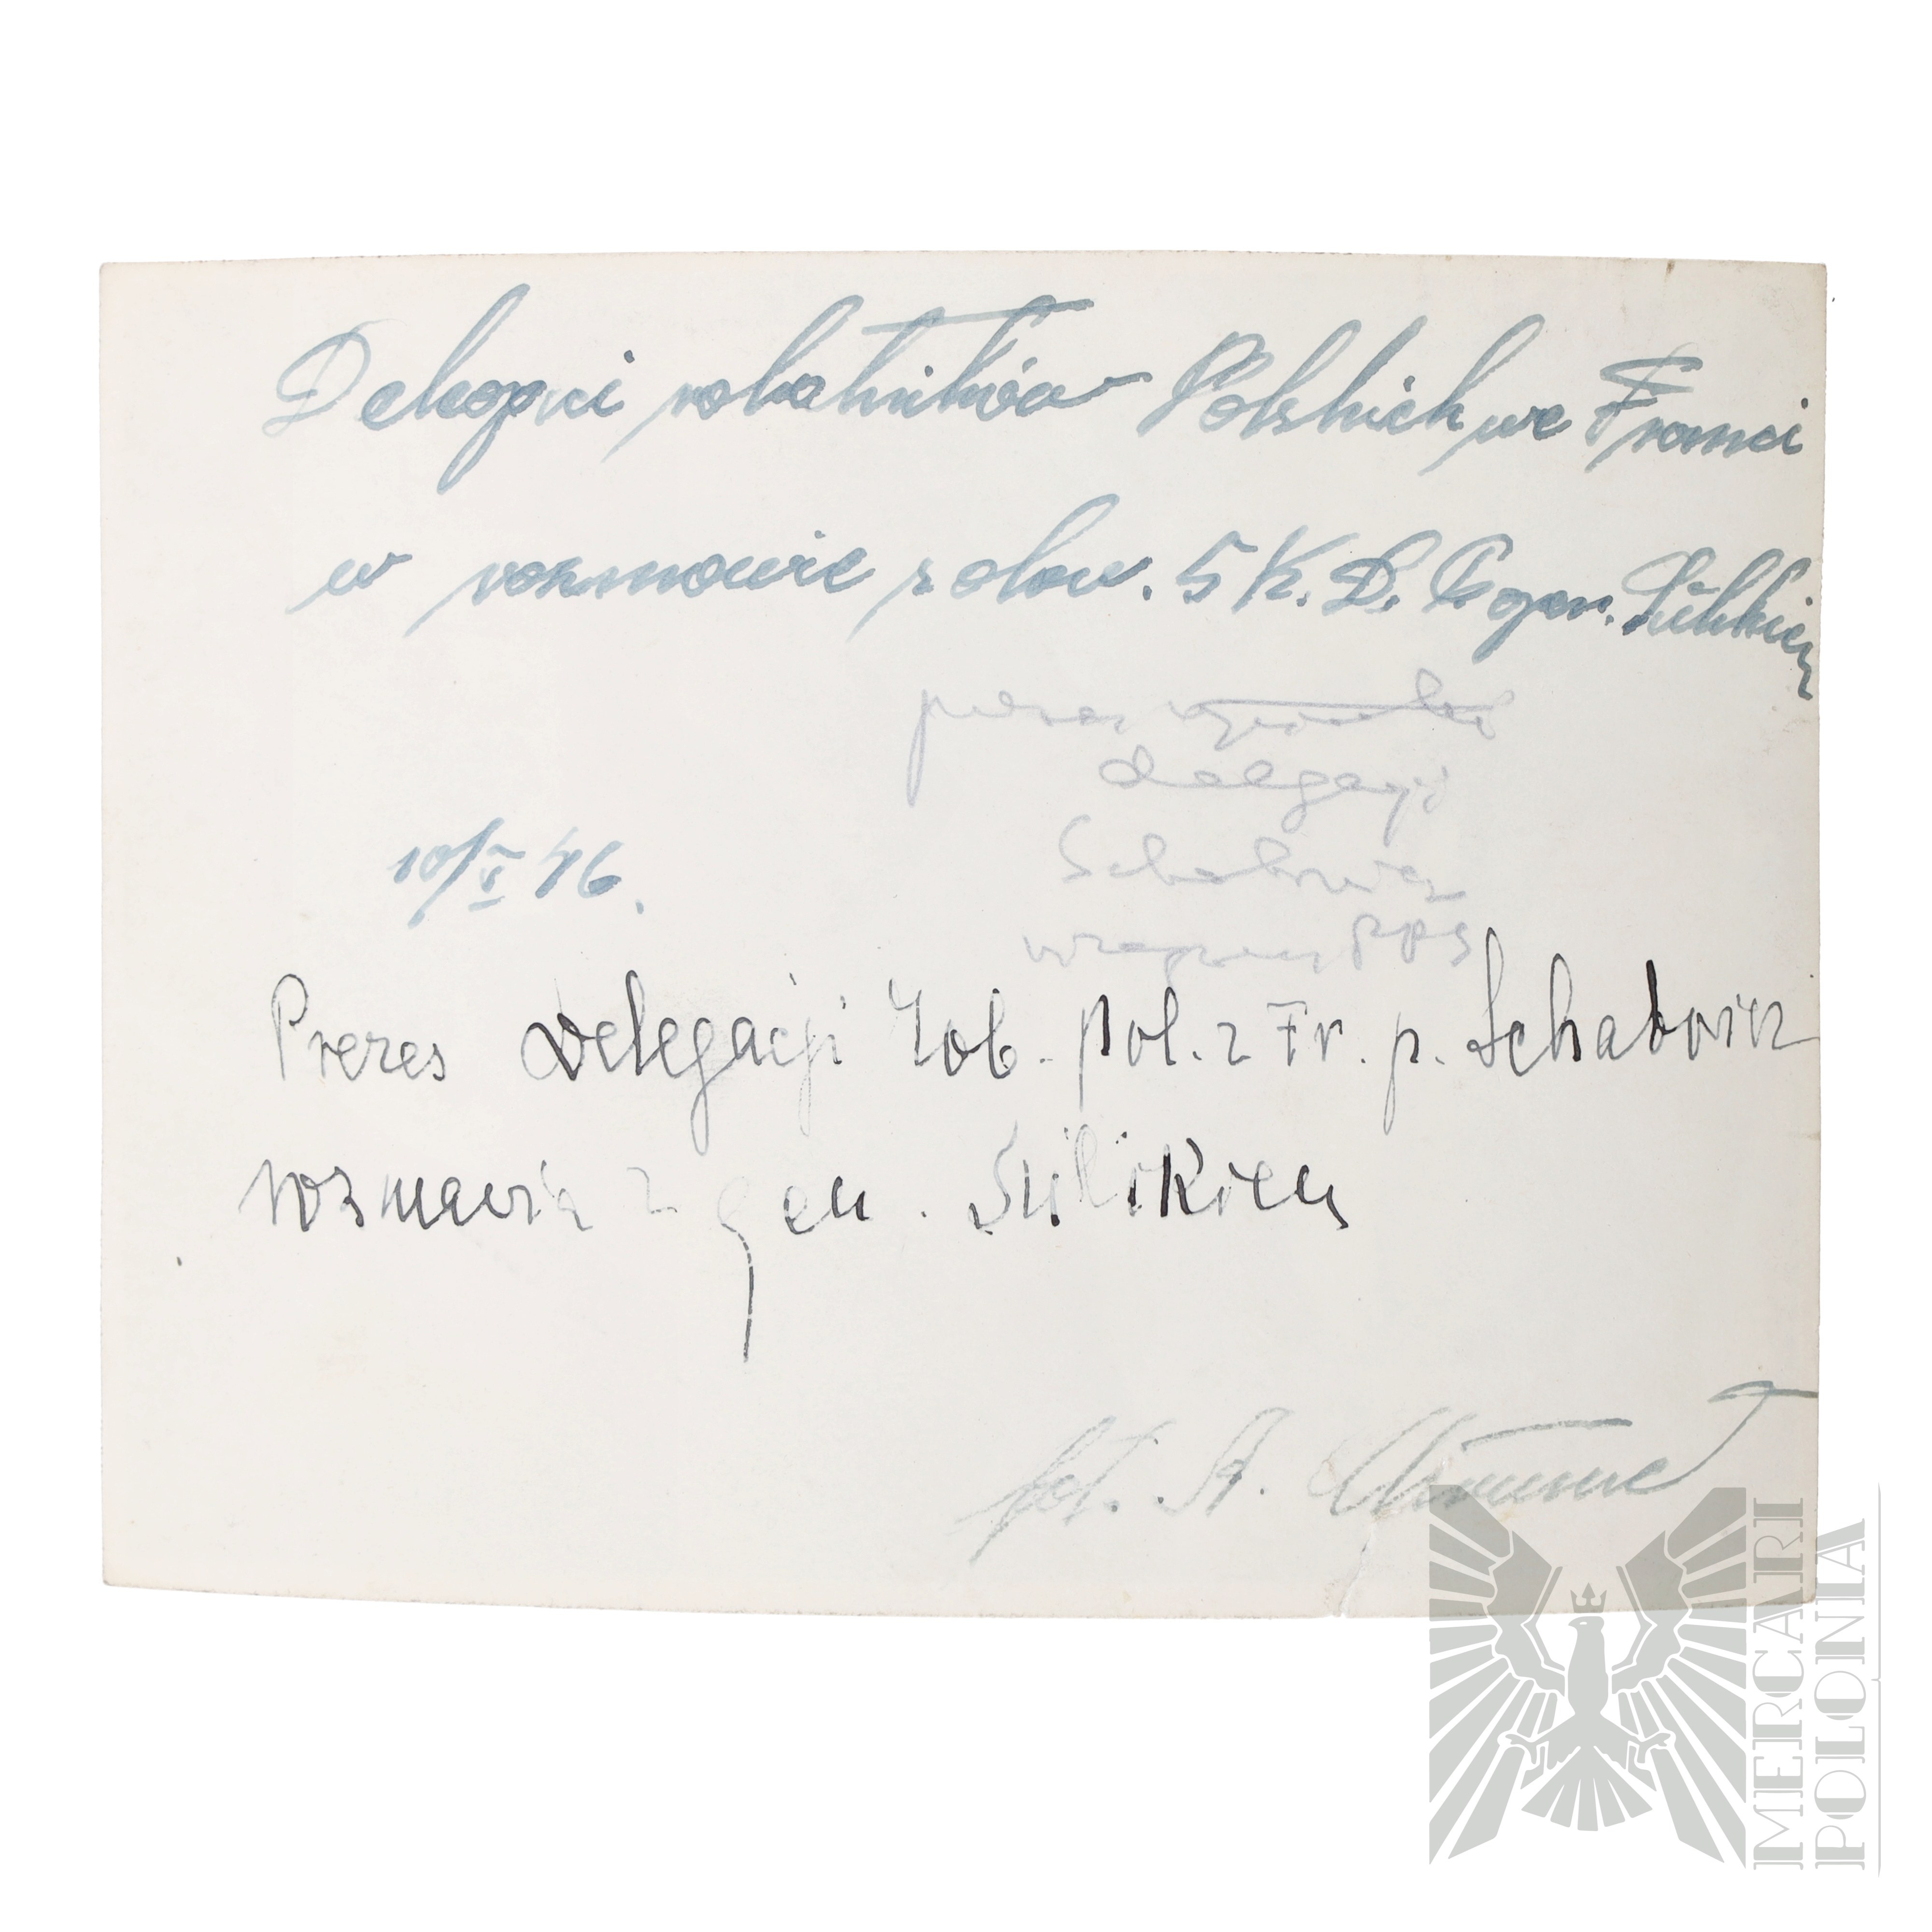 Delegaci robotników Polskich we Franci
w rozmowie z dow. 5 K.D.P. gen. Sulikiem
prezes
delegacji
Schabowicz
PPS
10/V 46.
Prezes Delegacji rob. pol. z Fr. p. Schabowicz
rozmawia z gen. Sulikiem
fot. A.
MERCARI
POLONIA